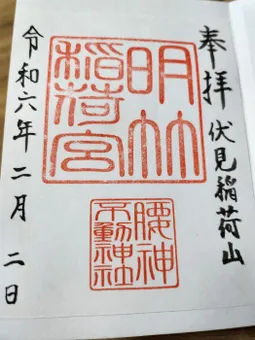 奉拝 伏見稲荷山
明竹
稲荷宮
腰神
不動神社
令和六年二月二日